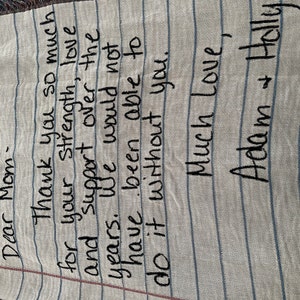 Dear Mom-
Thank you so much
for your strength, love
and support over the
years. We would not
have been able to
do it without you.
Much Love,
Adam + Holly